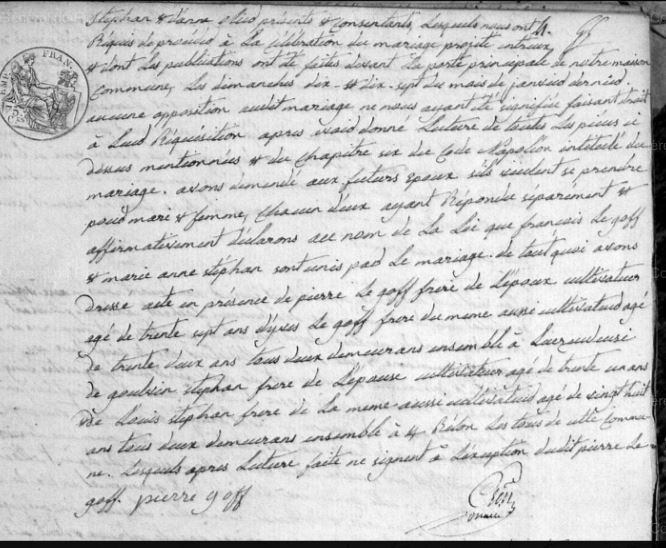 Stephan & d'anne olier présents & consentants, Lesquels nous ont
Réquis de procéder à La Célébration du mariage projeté entreux
& dont Les publications ont été faites devant La porte principale de notre maison
commune, Les dimanches dix & dix-sept du mois de janvier dernier.
aucune opposition audit mariage ne nous ayant été signifiée faisant droit
à Leur Réquisition après avoir donné Lecture de toutes Les pièces ci
dessus mentionnées & du chapitre six du Code Napoléon intitulé du
mariage. avons demandé aux futurs époux s'ils veulent se prendre
pour mari & femme, chacun d'eux ayant Répondu séparément &
affirmativement déclarons au nom de La Loi que françois Le goff
& marie anne stéphan sont unis par Le mariage. de tout quoi avons
dressé acte en présence de pierre Le goff frère de L'époux cultivateur
agé de trente sept ans d'yves Le goff frere du même aussi cultivateur agé
de trente deux ans tous deux demeurans ensemble à
de goulven stephan frere de L'épouse cultivateur agé de trente un ans
& de Louis stephan frere de La même aussi cultivateur agé de vingt huit
ans tous deux demeurans ensemble à Les tous de cette commu-
ne. Lesquels après Lecture faite ne signent à L'éxception dudit pierre Le
goff. pierre goff